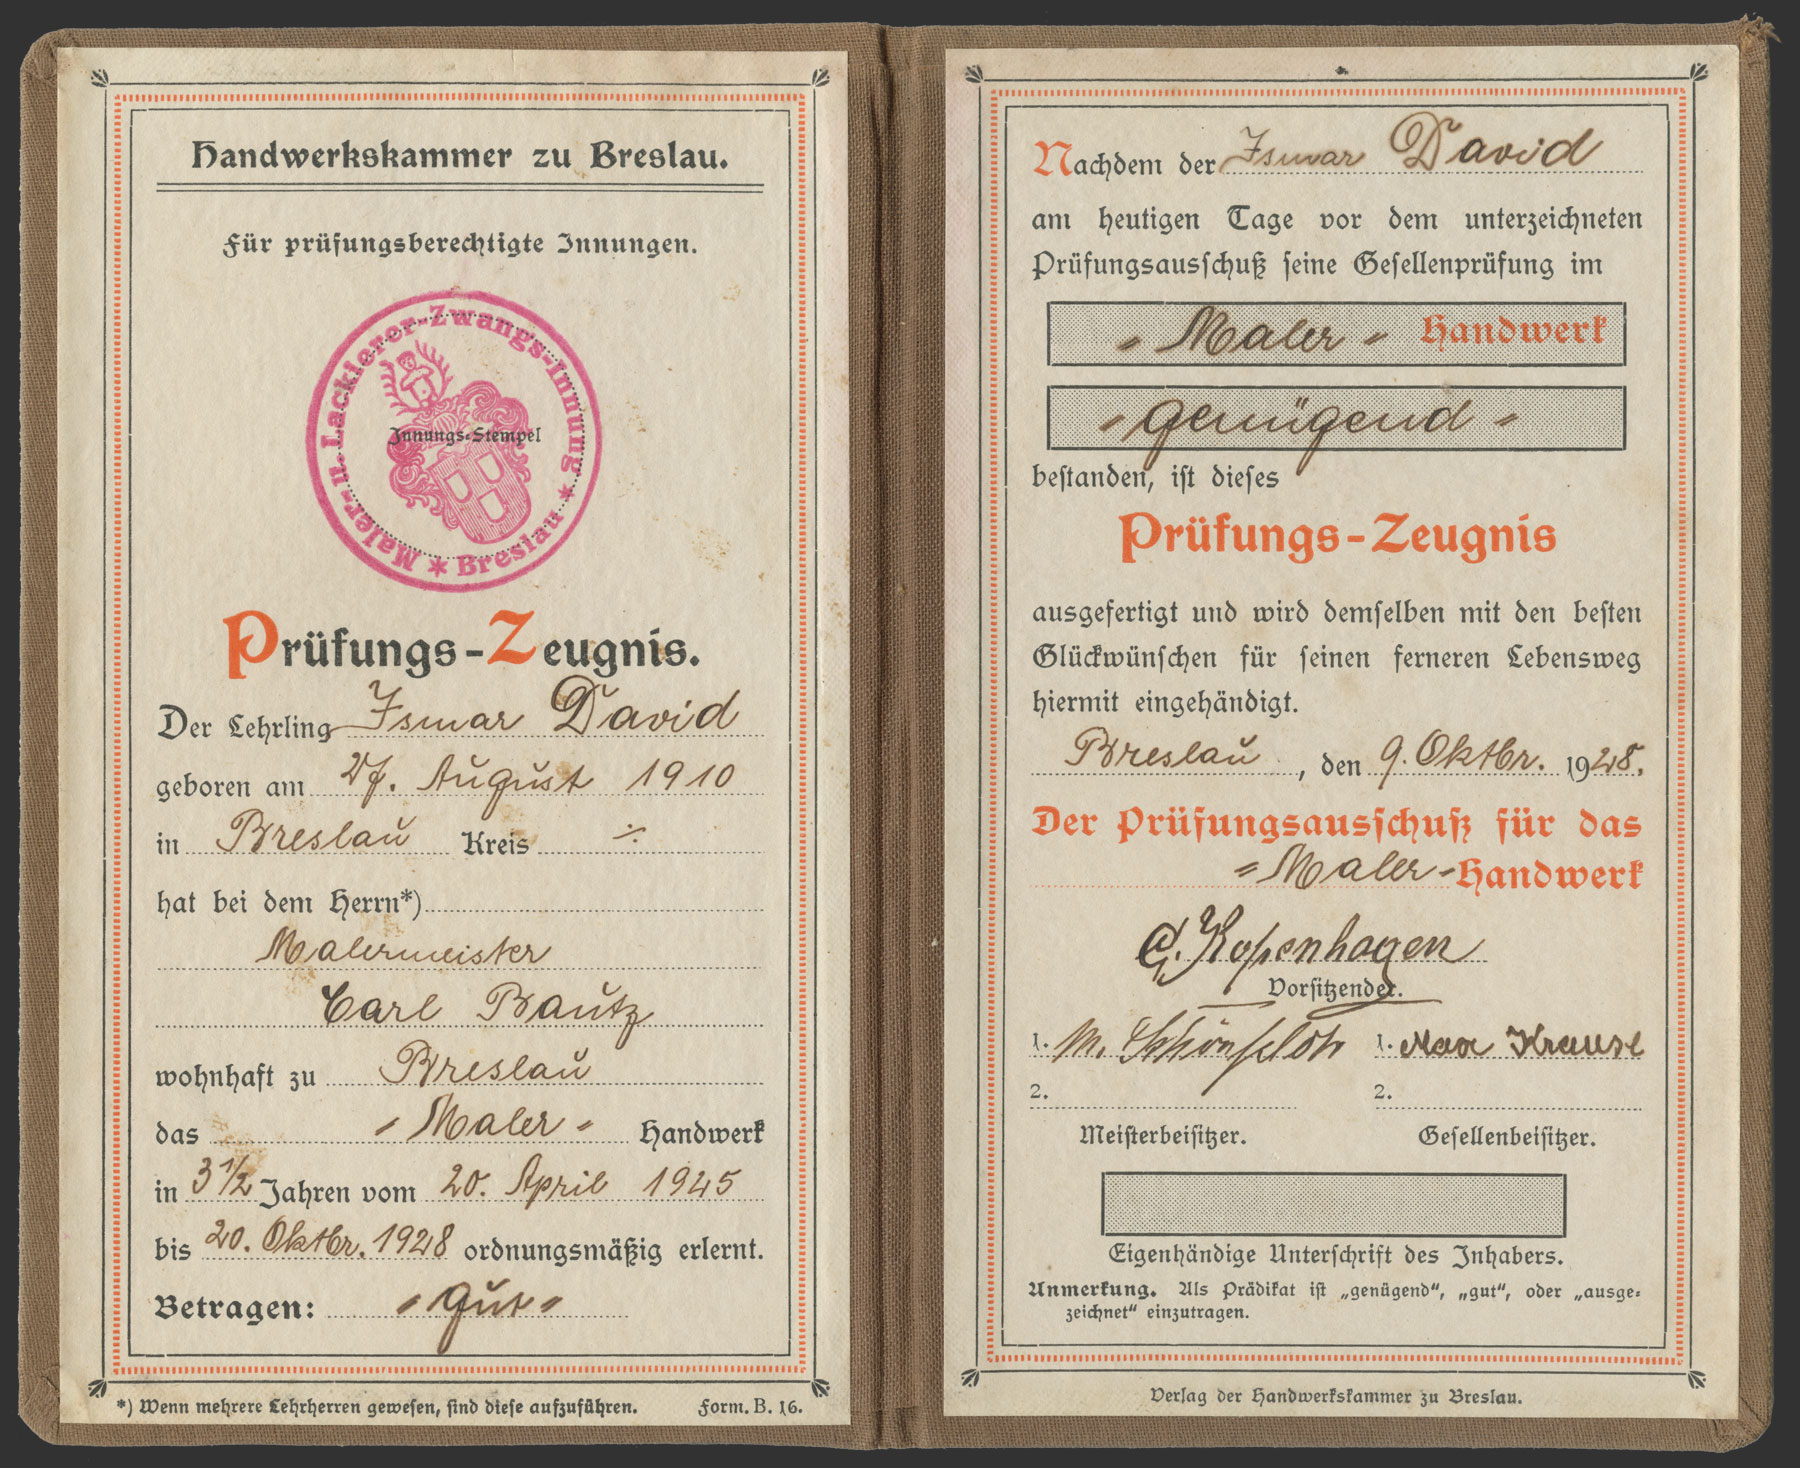 Handwerkskammer zu Breslau.
Für prüfungsberechtigte Innungen.
Maler- u. Lackierer-Zwangs-Innung * Breslau *
Innungs-Stempel
Prüfungs-Zeugnis.
Der Lehrling Ismar David
geboren am 27. August 1910
in Breslau Kreis ÷
hat bei dem Herrn*)
Malermeister
Carl Bautz
wohnhaft zu Breslau
das - Maler - Handwerk
in 3 1/2 Jahren vom 20. April 1925
bis 20. Oktbr. 1928 ordnungsmäßig erlernt.
Betragen: - gut -
*) Wenn mehrere Lehrherren gewesen, sind diese aufzuführen. Form. B. 16.
Nachdem der Ismar David
am heutigen Tage vor dem unterzeichneten
Prüfungsausschuß seine Gesellenprüfung im
- Maler - Handwerk
- genügend -
bestanden, ist dieses
Prüfungs-Zeugnis
ausgefertigt und wird demselben mit den besten
Glückwünschen für seinen ferneren Lebensweg
hiermit eingehändigt.
Breslau, den 9. Oktbr. 1928.
Der Prüfungsausschuß für das
- Maler - Handwerk
G. Kopenhagen
Vorsitzender.
1. M. 1. Max Krause
2. 2.
Meisterbeisitzer. Gesellenbeisitzer.
Eigenhändige Unterschrift des Inhabers.
Anmerkung. Als Prädikat ist „genügend“, „gut“, oder „ausge-
zeichnet“ einzutragen.
Verlag der Handwerkskammer zu Breslau.